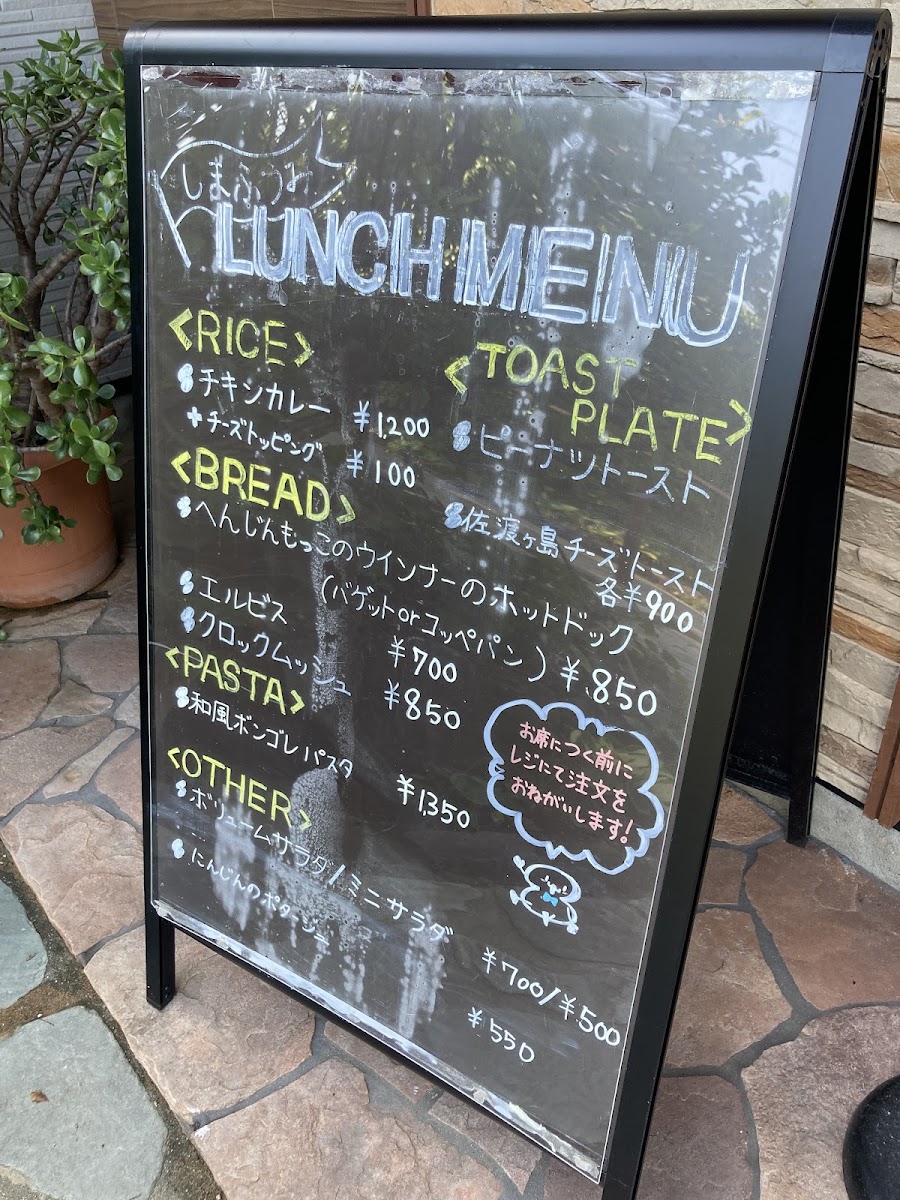 しまふうみ
LUNCH MENU
<RICE>
チキンカレー ¥1,200
+チーズトッピング ¥100
<BREAD>
へんじんもっこのウインナーのホットドック
(バゲットorコッペパン) ¥850
エルビス ¥700
クロックムッシュ ¥850
<PASTA>
和風ボンゴレパスタ ¥1,350
<OTHER>
ボリュームサラダ/ミニサラダ ¥700/¥500
にんじんのポタージュ ¥550
<TOAST
PLATE>
ピーナツトースト
佐渡ヶ島チーズトースト
各¥900
お席につく前に
レジにて注文を
おねがいします!